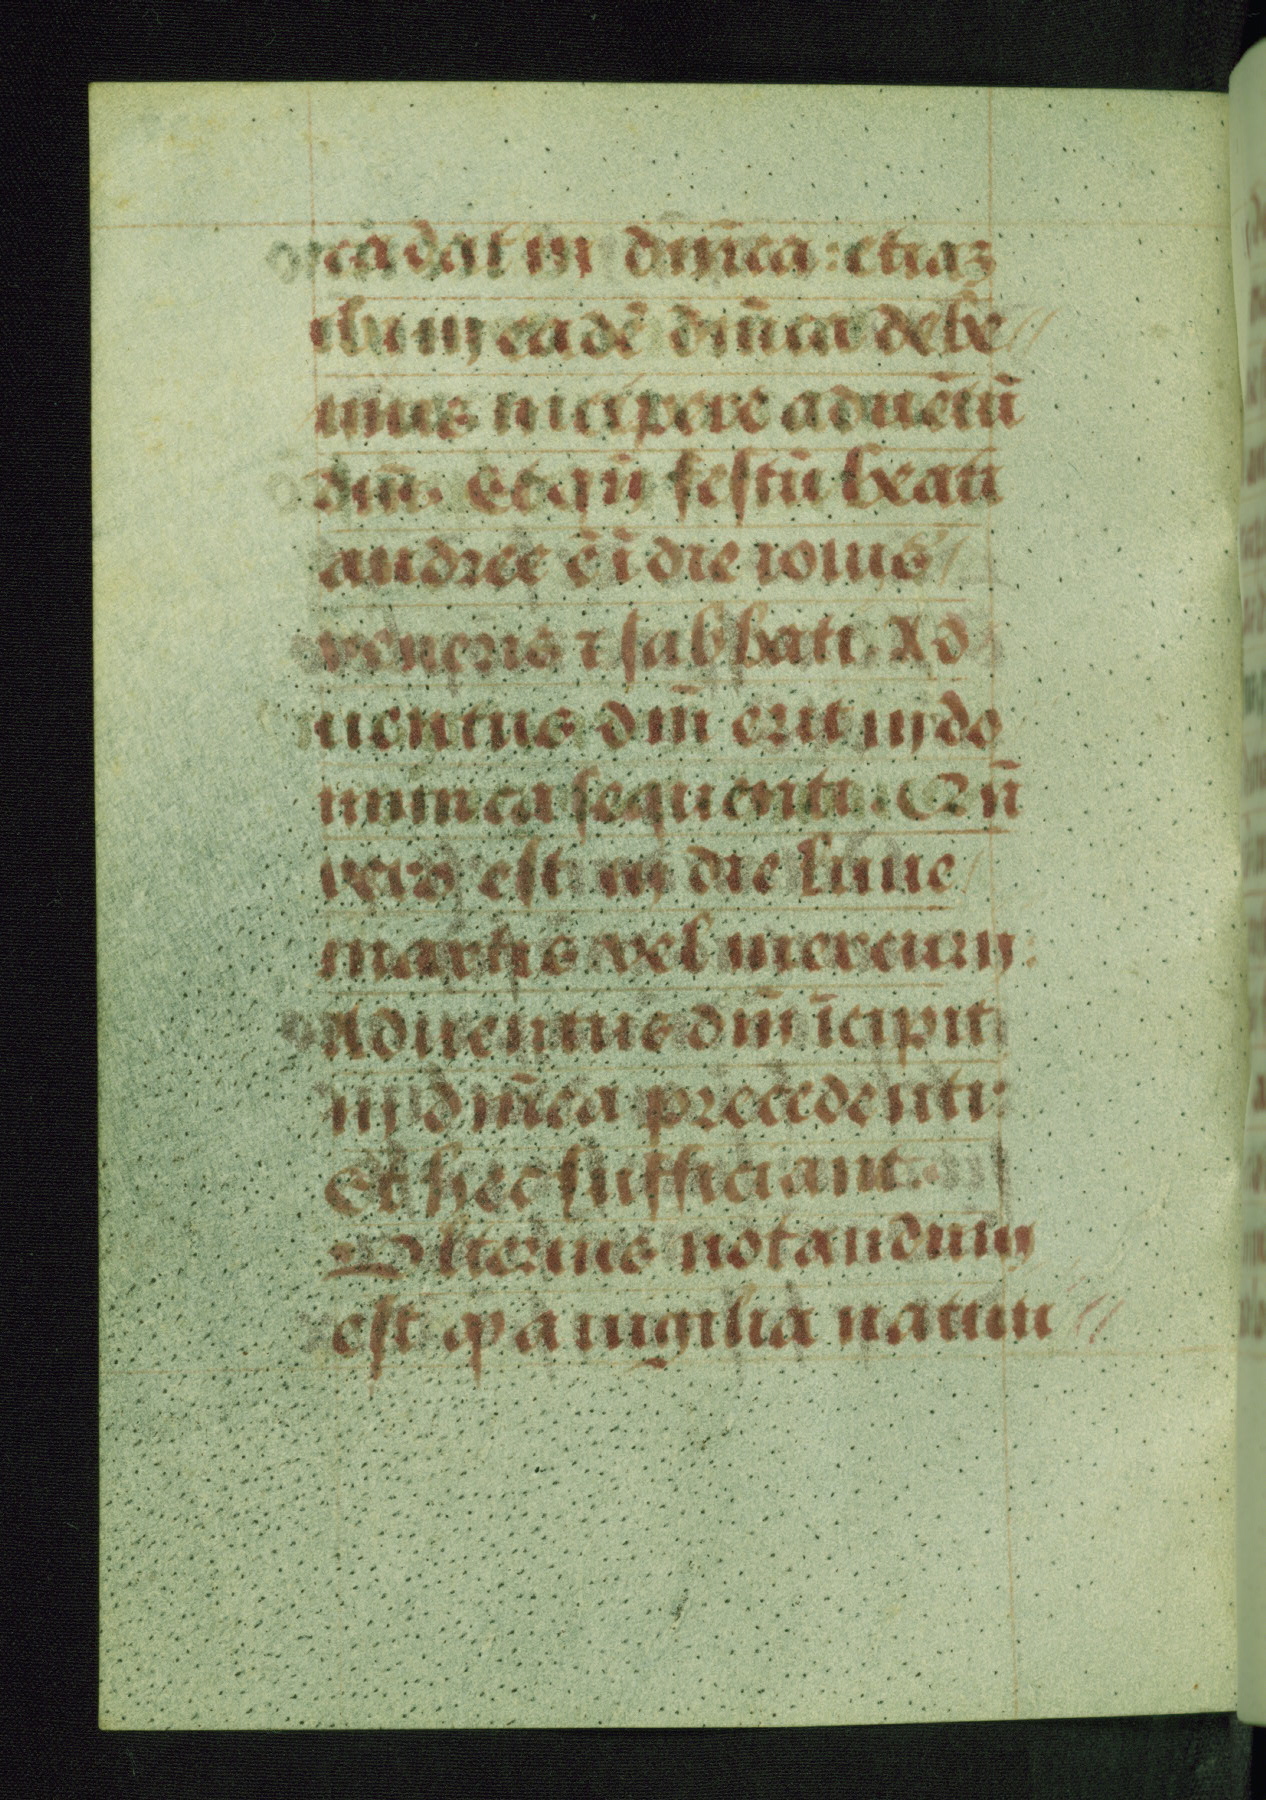 cadat in dn̄ica: etiaz
tunc in eadē dn̄ica debe
mus incipere aduētū
dn̄i. Et qn̄ festū beati
andree ē ī die iouis
veneris ⁊ sabbati. Ad
uentus dn̄i erit in do
minica sequenti. Qn̄
vero est in die lune
martis vel mercurij:
Aduentus dn̄i īcipit
in dn̄ica precedenti:
Et hec sufficiant.
Ulterius notandum
est ꝙ a uigilia natiui